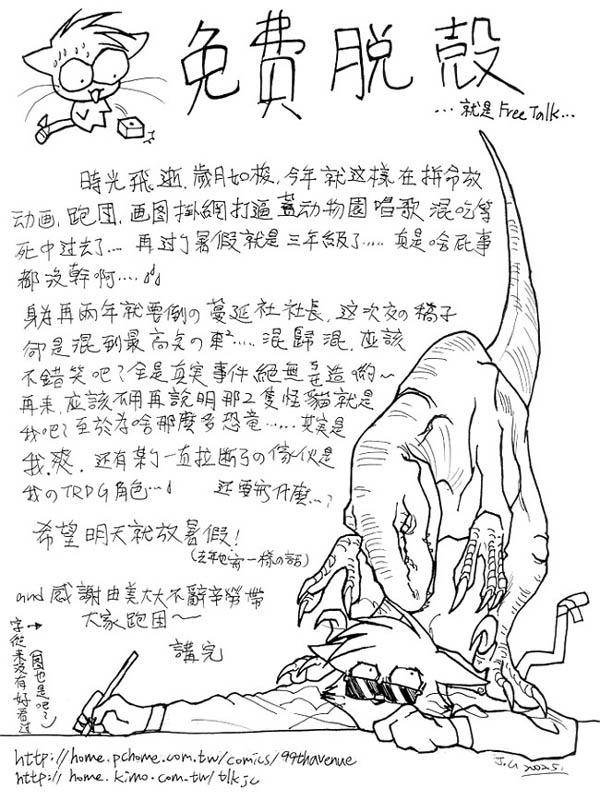 免費脱殼
...就是Free Talk...
時光飛逝,歲月如梭,今年就这樣在拼命放
动画,跑団,画图掛網打逼蓋动物園唱歌混吃等
死中过去了.... 再过了暑假就是三年級了..... 真是啥屁事
都沒幹啊....
身為再兩年就要倒の蔓延社社長,这次交の稿子
卻是混到最高点の東².....混歸混,应該
不錯笑吧?全是真实事件絕無造喲~
再来,应該不用再說明那2隻怪貓就是
我吧?至於為啥那麼多恐竜......其实是
我.爽.还有某个一直拉断弓の傢伙是
我のTRPG角色...
还要寫什麼...?
希望明天就放暑假!
(去年也寫一樣の話)
and 感謝由美大大不辭辛勞帶
大家跑団~
講完
字從来沒有好看过
(图也是吧~)
http://home.pchome.com.tw/comics/99thavenue
http://home.kimo.com.tw/tlkjc